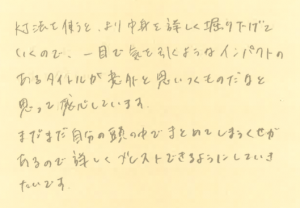 KJ法を使うと、より中身を詳しく掘り下げて
いくので、一目で気を引くようなインパクトの
あるタイトルが意外と思いつくものだなと
思って感心しています。
まだまだ自分の頭の中でまとめてしまうくせが
あるので詳しくブレストできるようにしていき
たいです。